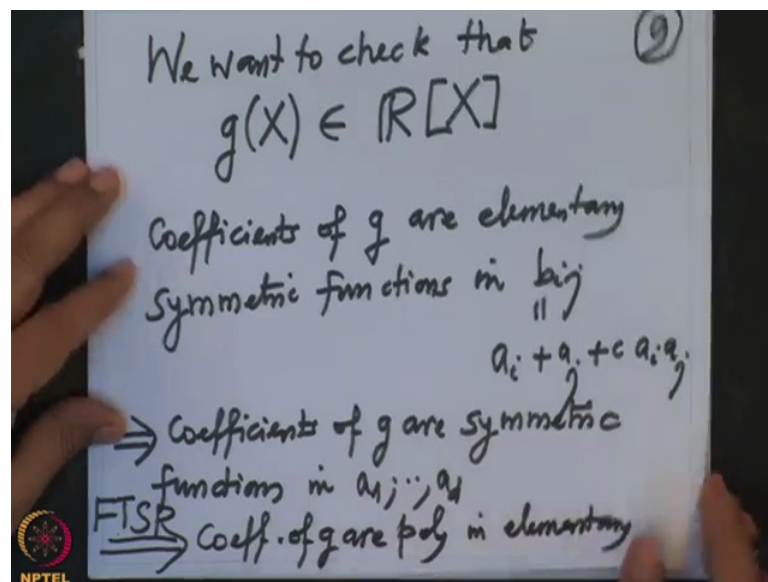 We want to check that
9
g(X) ∈ ℝ[X]
Coefficients of g are elementary
symmetric functions in bij
||
ai + aj + c ai aj
⇒ Coefficients of g are symmetric
functions in a1, ..., ad
FTSR ⇒ Coeff. of g are poly in elementary
NPTEL